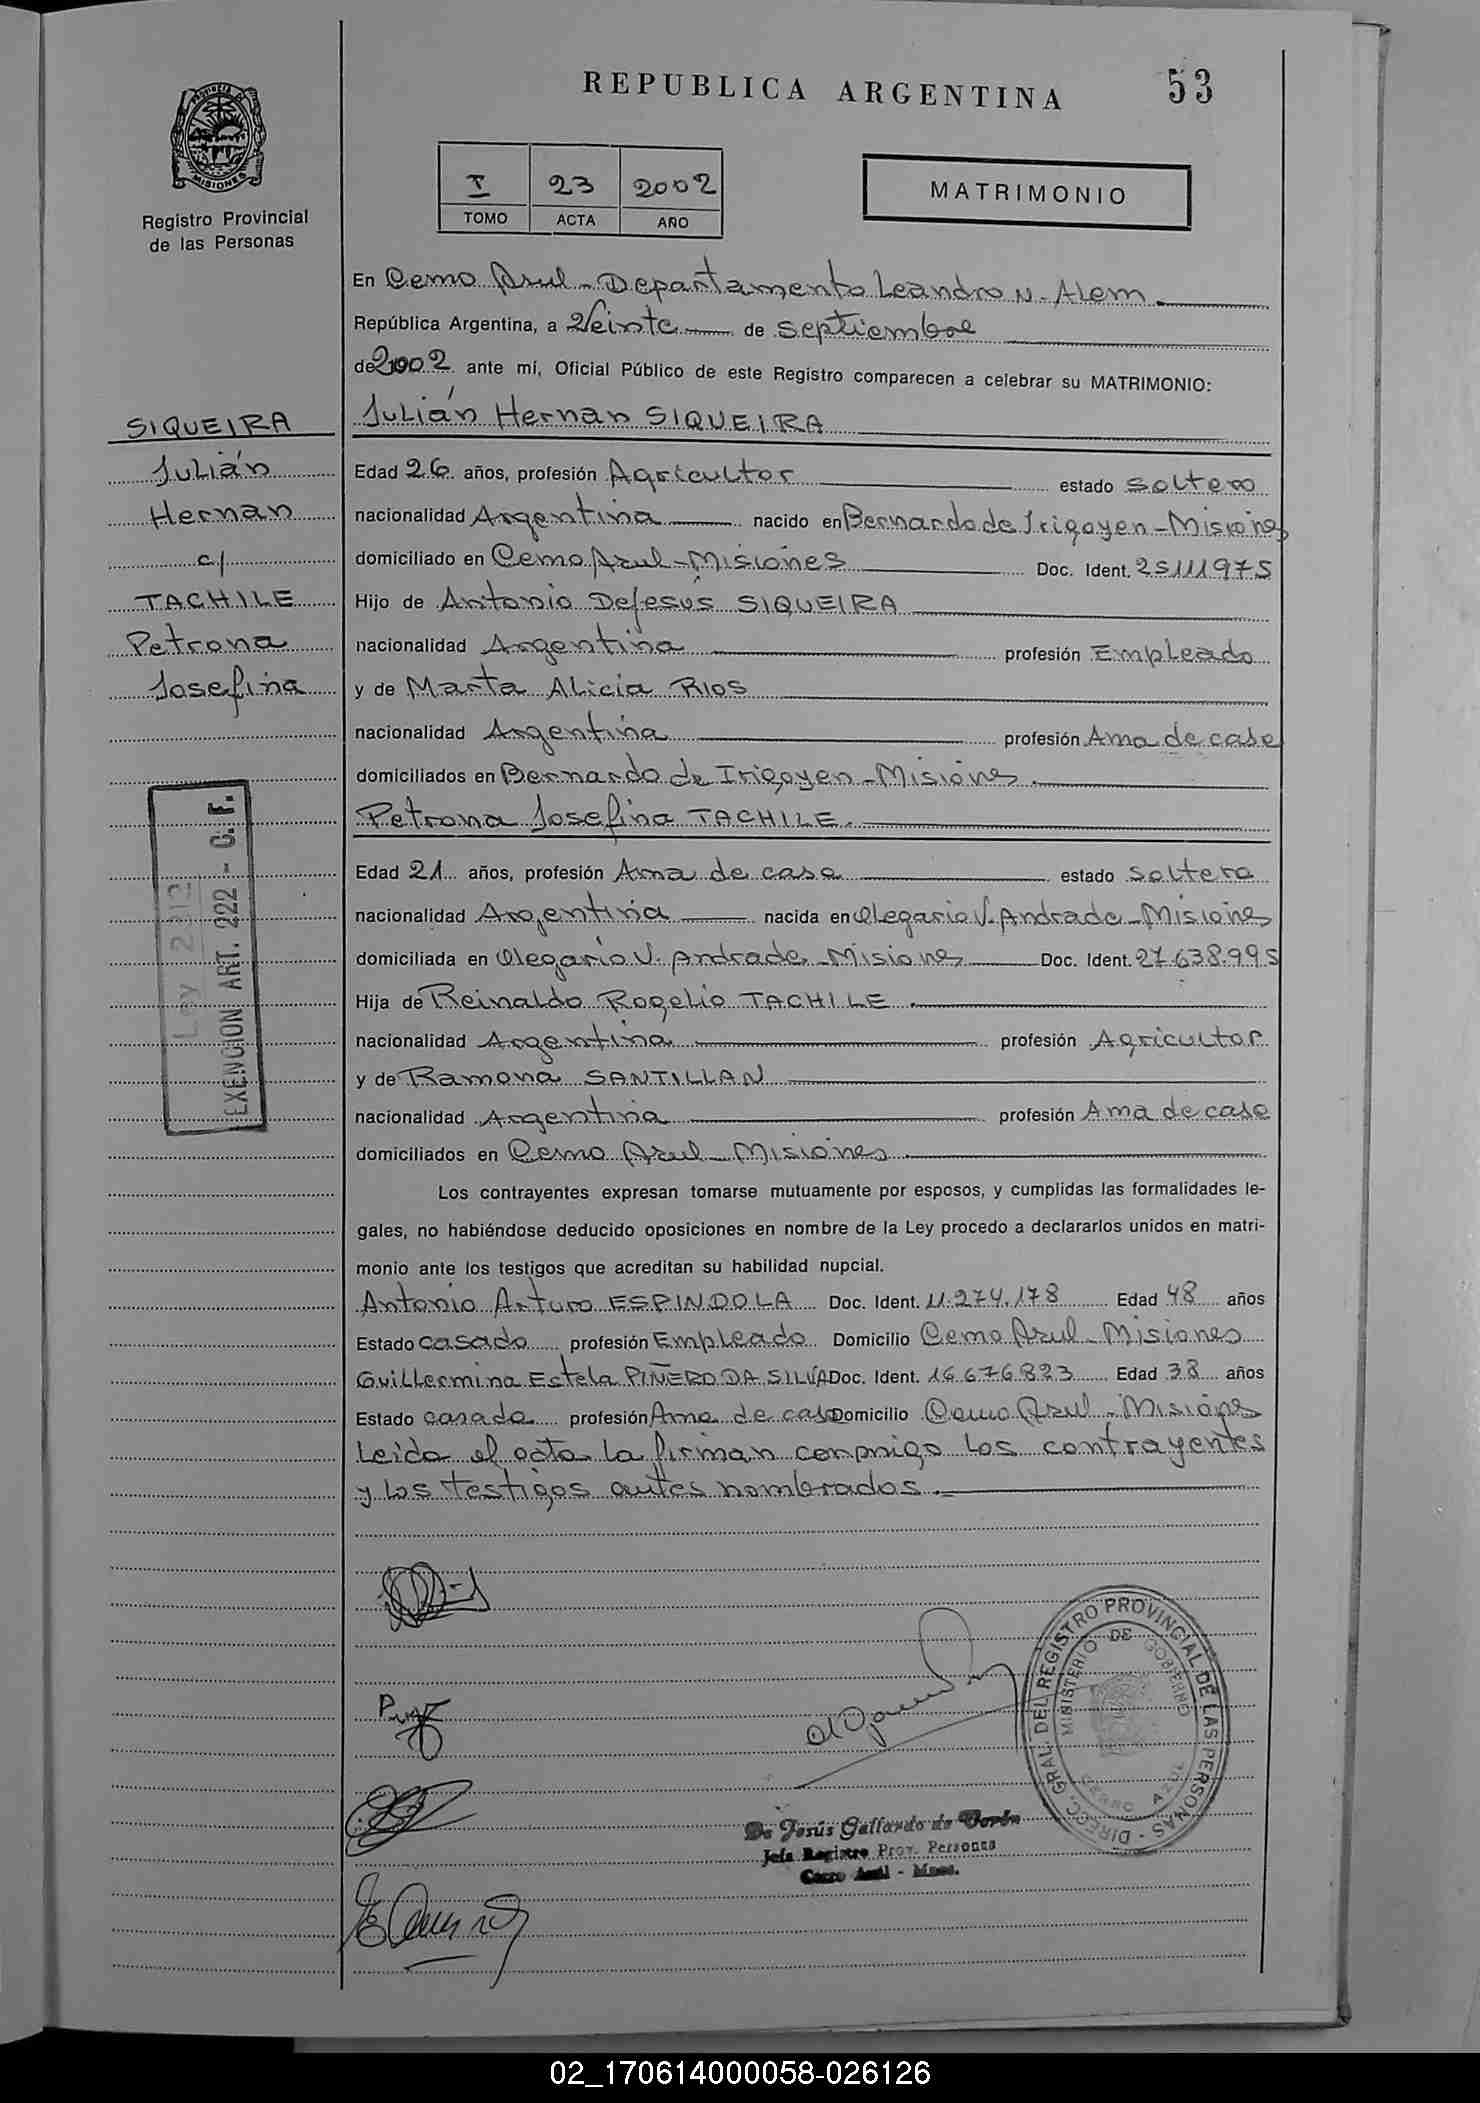 REPUBLICA ARGENTINA
53
PROVINCIA DE
MISIONES
Registro Provincial
de las Personas
I 23 2002
TOMO ACTA AÑO
MATRIMONIO
En Cerro Azul - Departamento Leandro N. Alem
República Argentina, a Veinte de septiembre
de 2002 ante mí, Oficial Público de este Registro comparecen a celebrar su MATRIMONIO:
Julián Hernan SIQUEIRA
SIQUEIRA
Julián
Hernan
c/
TACHILE
Petrona
Josefina
Edad 26 años, profesión Agricultor estado soltero
nacionalidad Argentina nacido en Bernardo de Irigoyen - Misiones
domiciliado en Cerro Azul - Misiones Doc. Ident. 25111975
Hijo de Antonio Dejesús SIQUEIRA
nacionalidad Argentina profesión Empleado
y de Marta Alicia RIOS
nacionalidad Argentina profesión Ama de casa
domiciliados en Bernardo de Irigoyen - Misiones.
Petrona Josefina TACHILE.
Edad 21 años, profesión Ama de casa estado soltera
nacionalidad Argentina nacida en Olegario V. Andrade - Misiones
domiciliada en Olegario V. Andrade - Misiones Doc. Ident. 27.638.995
Hija de Reinaldo Rogelio TACHILE.
nacionalidad Argentina profesión Agricultor
y de Ramona SANTILLAN
nacionalidad Argentina profesión Ama de casa
domiciliados en Cerro Azul - Misiones.
Ley 2312
EXENCION ART. 222 - C. F.
Los contrayentes expresan tomarse mutuamente por esposos, y cumplidas las formalidades le-
gales, no habiéndose deducido oposiciones en nombre de la Ley procedo a declararlos unidos en matri-
monio ante los testigos que acreditan su habilidad nupcial.
Antonio Arturo ESPINDOLA Doc. Ident. 11.274.178 Edad 48 años
Estado casado profesión Empleado Domicilio Cerro Azul - Misiones
Guillermina Estela PIÑERO DA SILVA Doc. Ident. 16.676.823 Edad 38 años
Estado casada profesión Ama de casa Domicilio Cerro Azul - Misiones
Leida el acta la firman conmigo los contrayentes
y los testigos antes nombrados.
DIRECC. GRAL. DEL REGISTRO PROVINCIAL DE LAS PERSONAS
MINISTERIO DE GOBIERNO
CERRO AZUL
De Jesús Gallardo de
Jefa Registro Prov. Personas
Cerro Azul - Mnes.
02_170614000058-026126